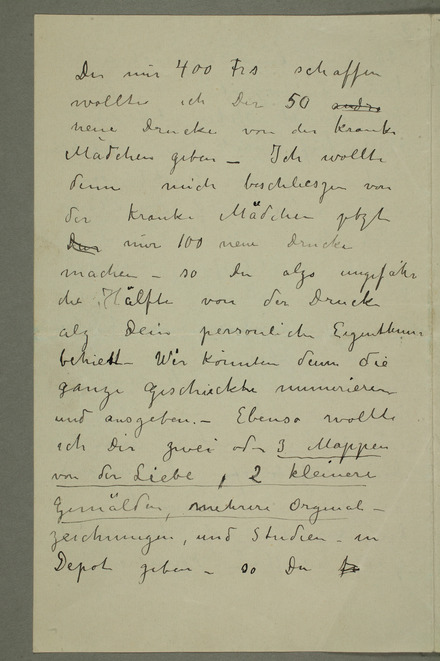 Du mir 400 Frs schaffen
wollte ich Dir 50 andre
neue Drucke von der kranke
Mädchen geben – Ich wollte
denn mich beschlieszen von
der kranke Mädchen jetzt
nur 100 neue Drucke
machen – so Du also ungefähr
die Hälfte von der Drucke
als Dein personliche Eigenthum
behielt – Wir könnten denn die
ganze Geschickte numerieren
und ausgeben. – Ebenso wollte
ich Dir zwei oder 3 Mappen
von der Liebe, 2 kleinere
Gemälden, mehrere Orginal-
zeichnungen, und Studien – in
Depot geben – so Du